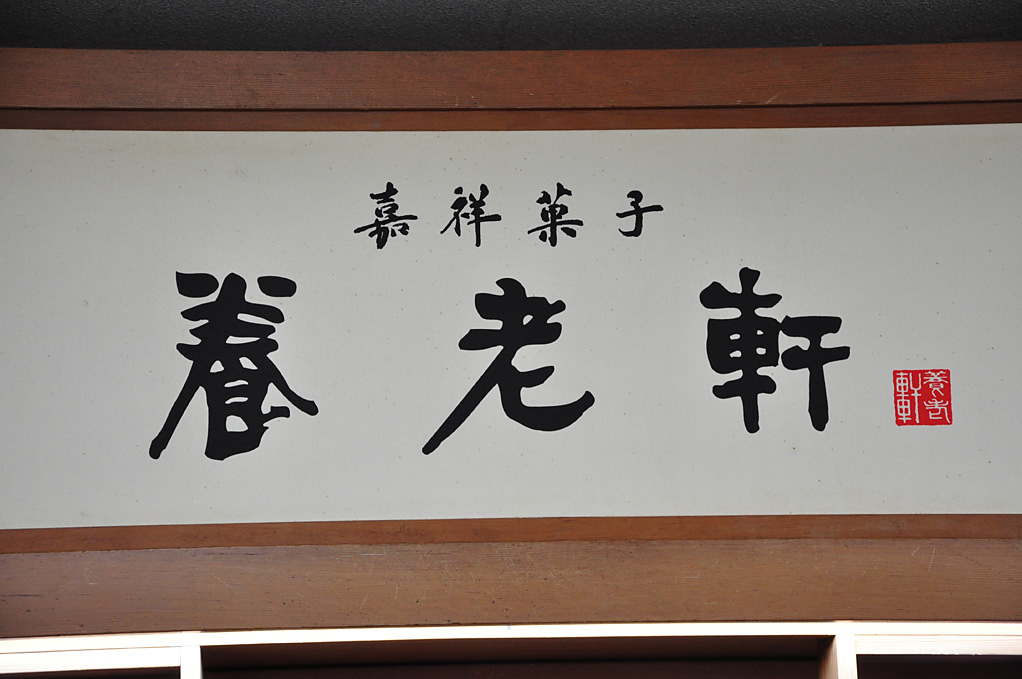 嘉祥菓子
養老軒
養老軒